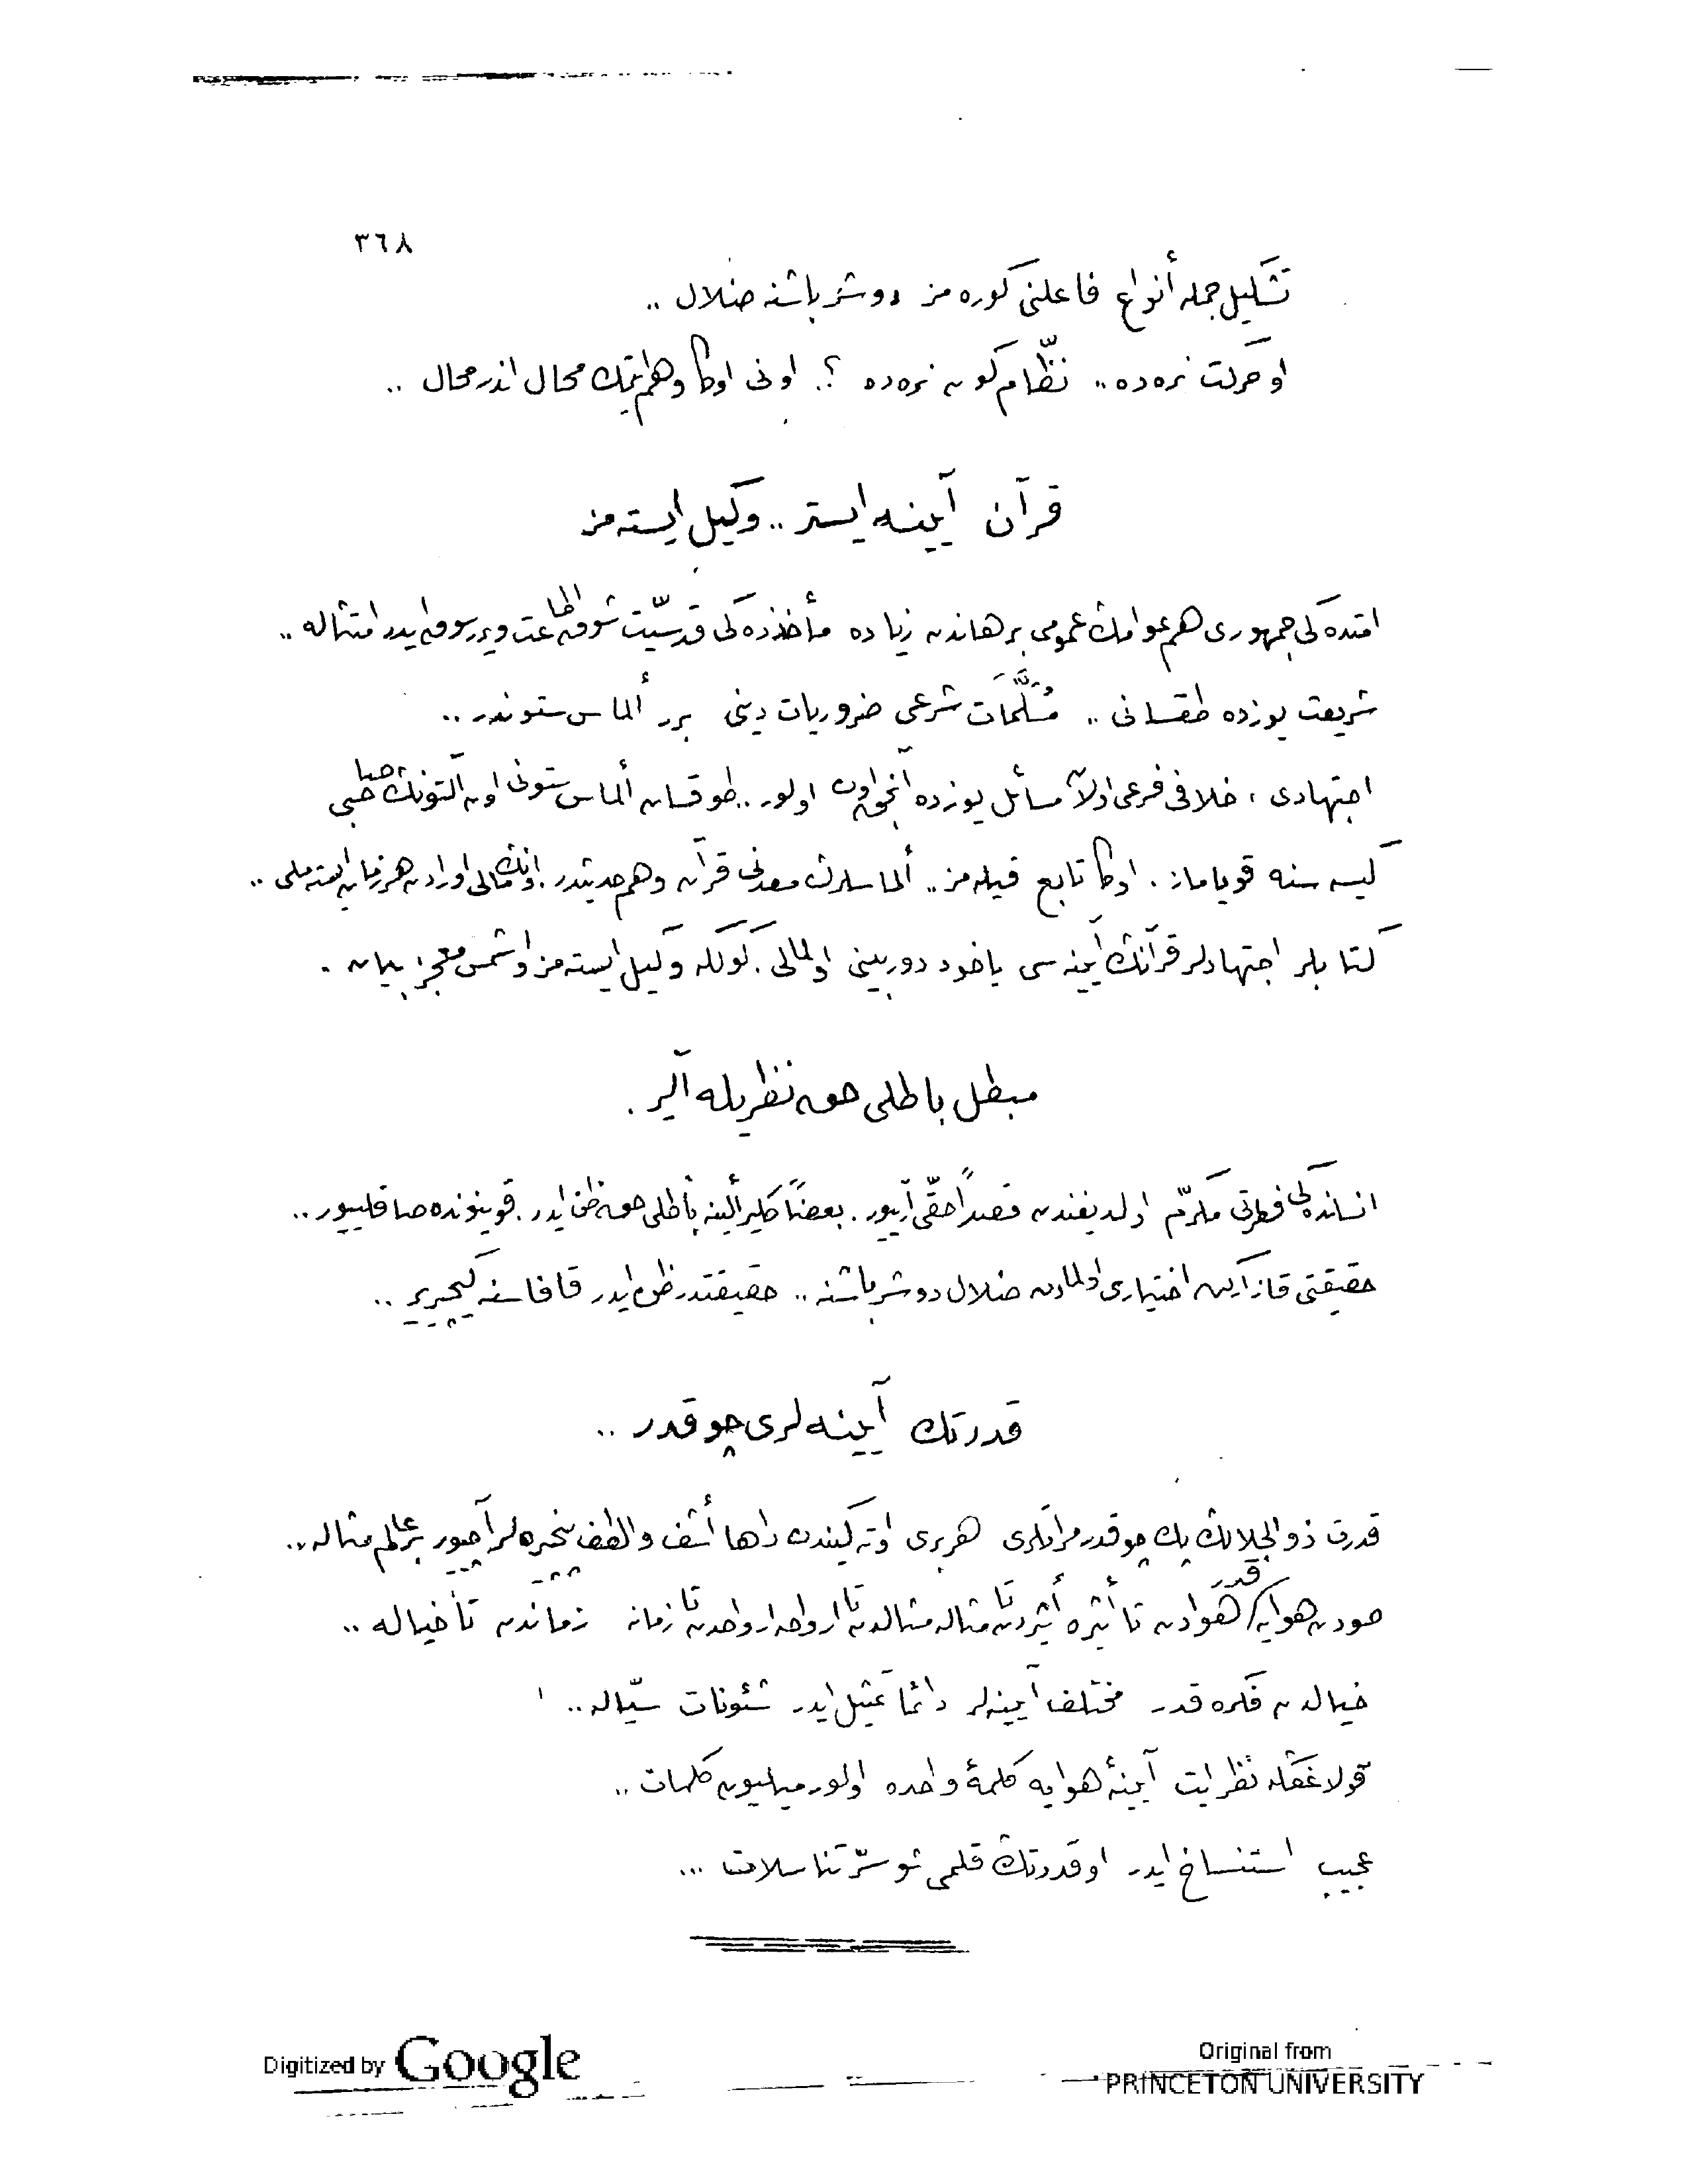 ٣٦٨
تشكيل جمله أنواع فاعلنى كوره مز دوشر باشنه ضلال ..
او حركت نره ده .. نظّام كون نره ده ؟. اونى اوكا وهم ايتمك محال اندر محال ..
قرآن آيينه ايستر .. وكيل ايسته مز
امتده كى جمهورى هم عوامك عمومى برهاندن زياده مأخذده كى قدسيّت شوق اطاعت ويرر سوق ايدر امتثاله ..
شريعت يوزده طقسانى .. مُسَلَّمَات شرعى ضروريات دينى برر ألماس ستوندر ..
اجتهادى ، خلافى فرعى اولان مسائل يوزده آنجق اون اولور .. طوقسان ألماس ستونى اون آلتونك صاحبى
كيسه سنه قويامازـ . اوكا تابع قيله مز .. ألماسلرك معدنى قرآن وهم حديثدر . اونك مالى اورادن هر زمان ايسته ملى ..
كتابلر اجتهادلر قرآنك آيينه سى ياخود دوربينى اولمالى . كولكه وكيل ايسته مز او شمس معجز بيان .
مبطل باطلى حق نظريله آلير .
انسانده كى فطرتى مكرّم اولديغندن قصداً حقّى آرييور . بعضاً كلير ألينه باطلى حق ظن ايدر . قوينونده صاقلييور ..
حقيقتى قازاركن اختيارى اولمادن ضلال دوشر باشنه .. حقيقتدر ظن ايدر قافاسنه كيچيرير ..
قدرتك آيينه لرى چوقدر ..
قدرت ذوالجلالك پك چوقدر مراتلرى هربرى اوته كيندن داها أشف والطف پنجره لر آچيور بر عالم مثاله ..
صودن هوايه قدر هوادن تا أثيره أثيردن تا مثاله مثالدن تا ارواحه ارواحدن تا زمانه زماندن تا خياله ..
خيالدن فكره قدر مختلف آيينه لر دائما تمثيل ايدر شئونات سيّاله ..
قولاغكله نظر ايت آيينهٔ هوايه كلمهٔ واحده اولور ميليون كلمات ..
عجيب استنساخ ايدر او قدرتك قلمى شو سرّ تناسلات ...
Digitized by Google
Original from
PRINCETON UNIVERSITY